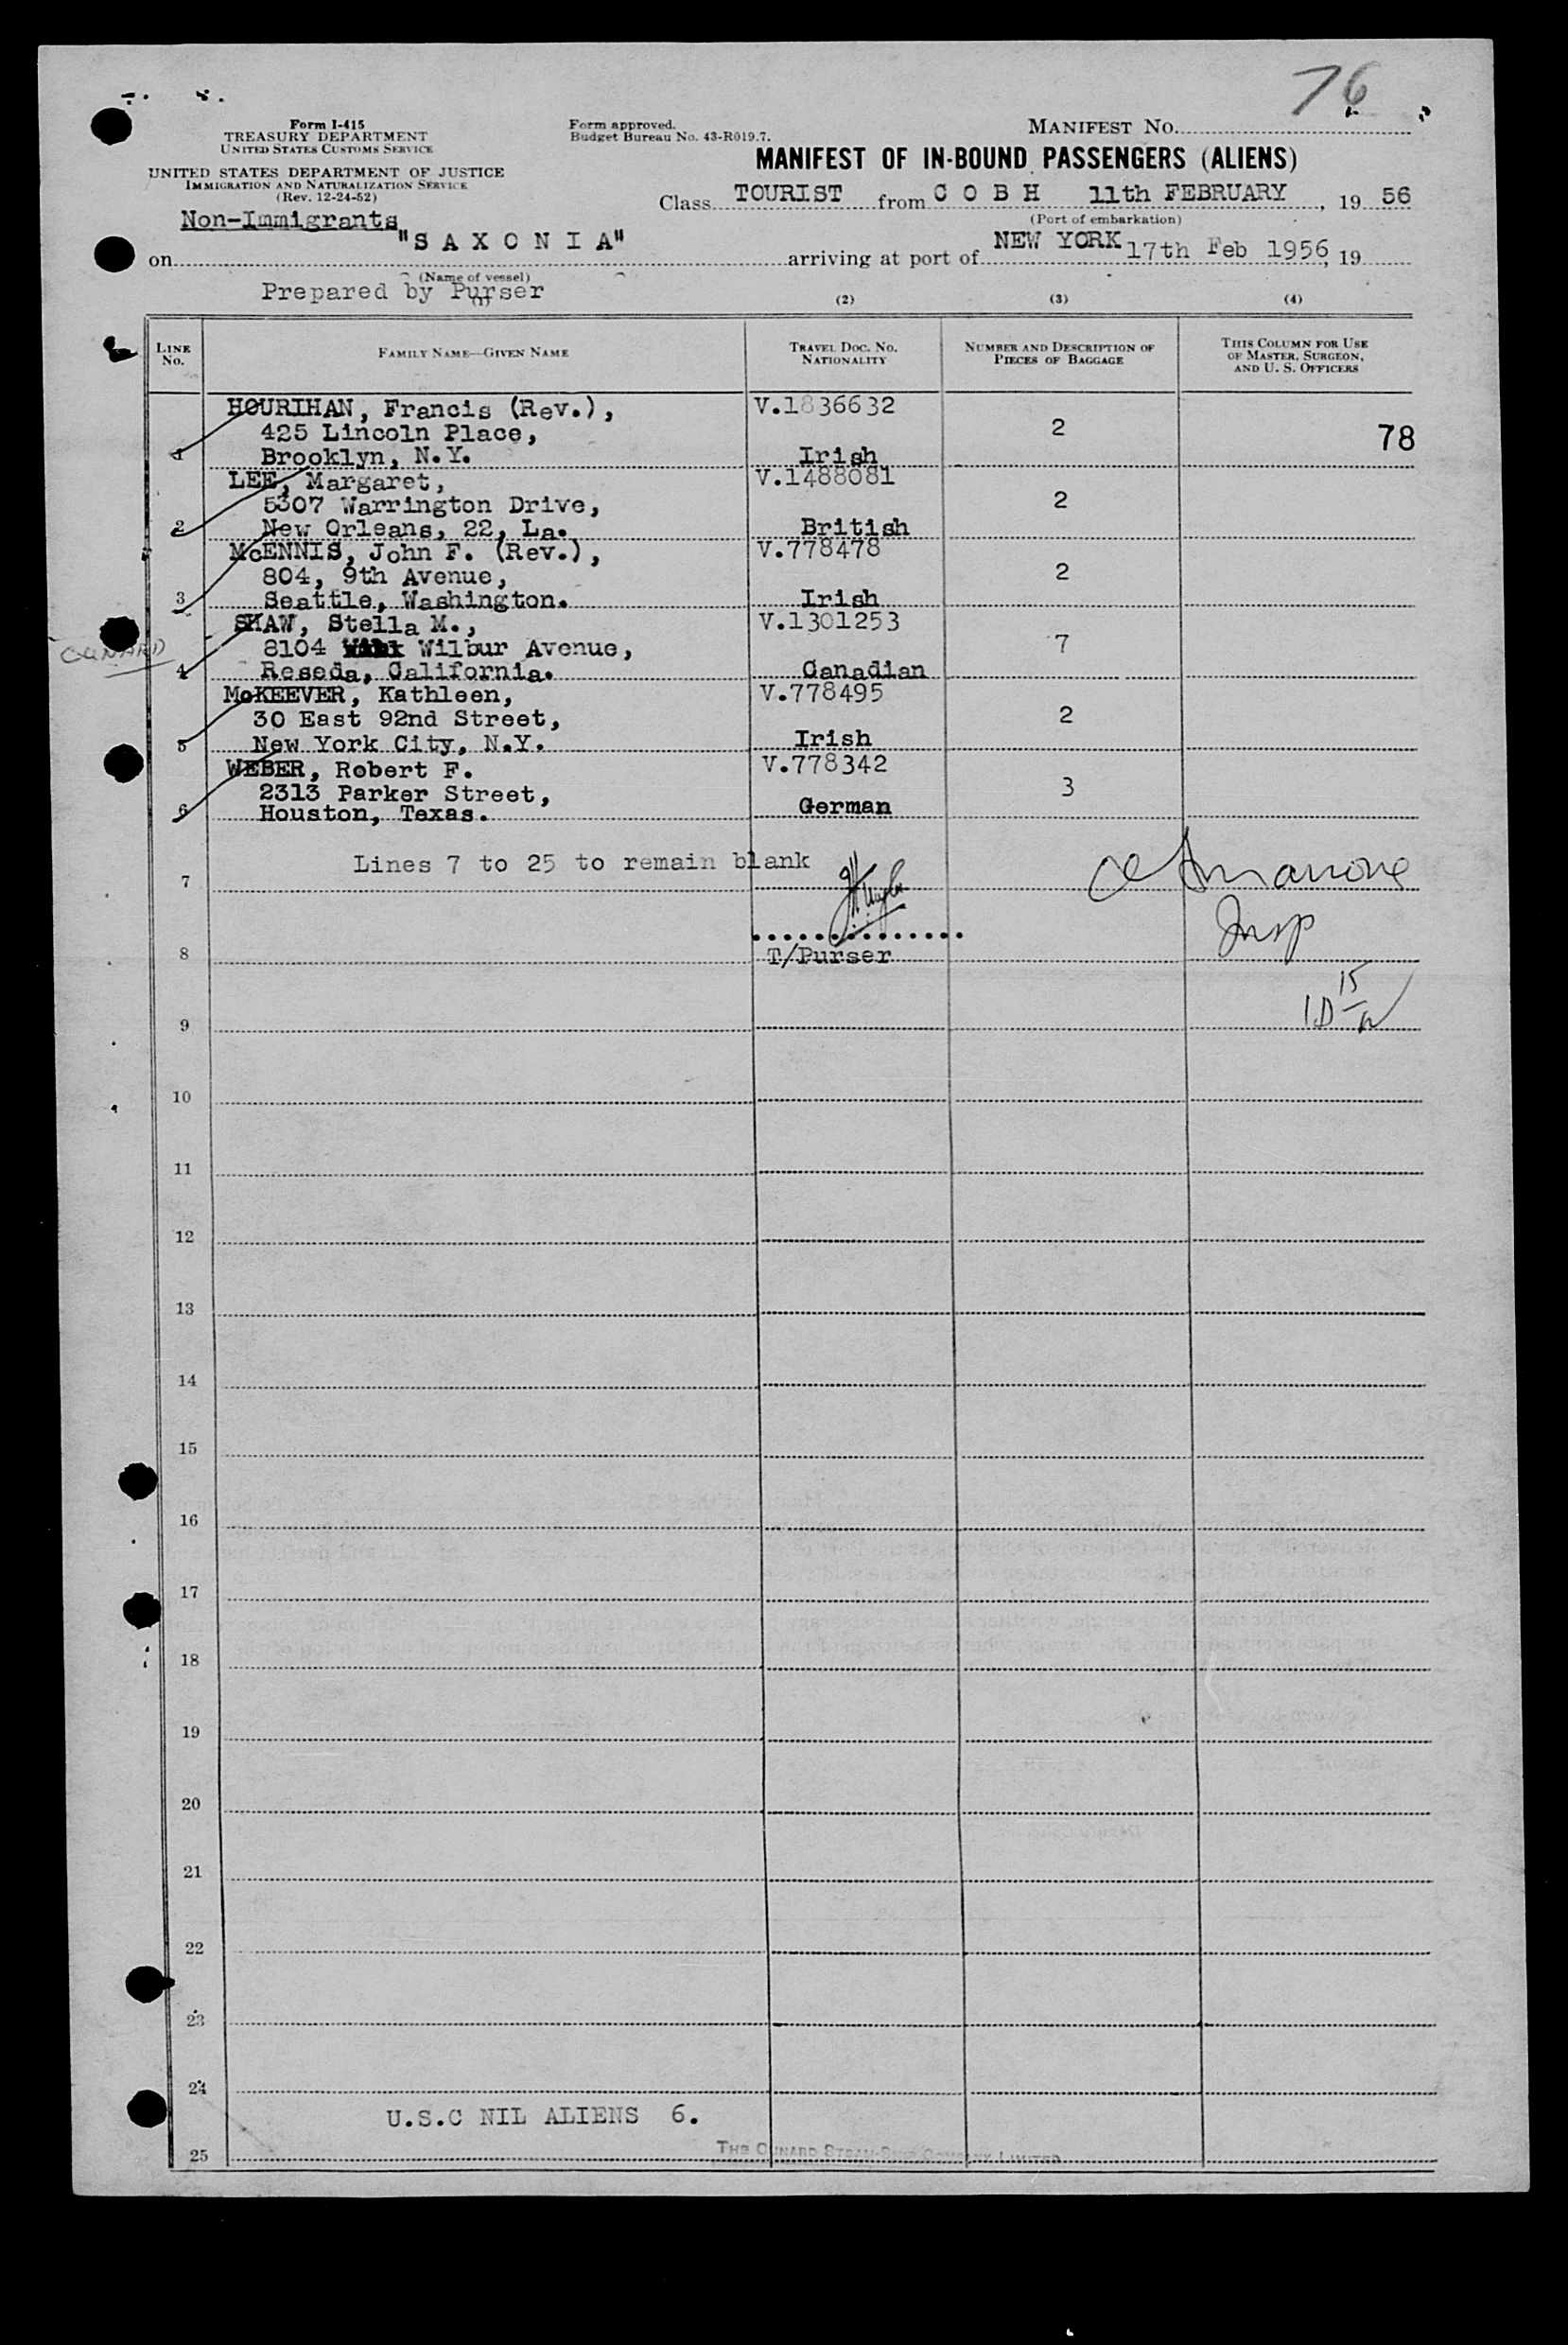 76
Form I-415
TREASURY DEPARTMENT
UNITED STATES CUSTOMS SERVICE
UNITED STATES DEPARTMENT OF JUSTICE
IMMIGRATION AND NATURALIZATION SERVICE
(Rev. 12-24-52)
Form approved.
Budget Bureau No. 43-R019.7.
MANIFEST No.
MANIFEST OF IN-BOUND PASSENGERS (ALIENS)
Class TOURIST from C O B H 11th FEBRUARY, 19 56
(Port of embarkation)
Non-Immigrants
on "S A X O N I A" arriving at port of NEW YORK 17th Feb 1956, 19
(Name of vessel)
Prepared by Purser
(1) (2) (3) (4)
LINE No. FAMILY NAME—GIVEN NAME TRAVEL DOC. NO. NATIONALITY NUMBER AND DESCRIPTION OF PIECES OF BAGGAGE THIS COLUMN FOR USE OF MASTER, SURGEON, AND U. S. OFFICERS
HOURIHAN, Francis (Rev.), V.1836632
425 Lincoln Place, 2 78
1 Brooklyn, N.Y. Irish
LEE, Margaret, V.1488081
5307 Warrington Drive, 2
2 New Orleans, 22, La. British
McENNIS, John F. (Rev.), V.778478
804, 9th Avenue, 2
3 Seattle, Washington. Irish
SHAW, Stella M., V.1301253
8104 Wilbur Avenue, 7
CUNARD
4 Reseda, California. Canadian
McKEEVER, Kathleen, V.778495
30 East 92nd Street, 2
5 New York City, N.Y. Irish
WEBER, Robert F. V.778342
2313 Parker Street, 3
6 Houston, Texas. German
Lines 7 to 25 to remain blank
7
Insp
8 T/Purser
9
10
11
12
13
14
15
16
17
18
19
20
21
22
23
24
U.S.C NIL ALIENS 6.
25 THE CUNARD STEAM-SHIP COMPANY LIMITED